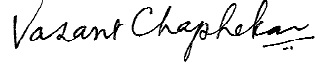 Vasant Chaphekar